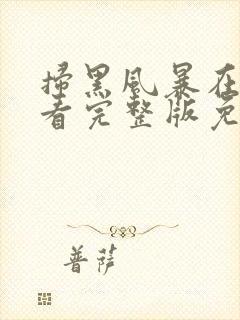 掃黑風暴在
看完整版免
普薩